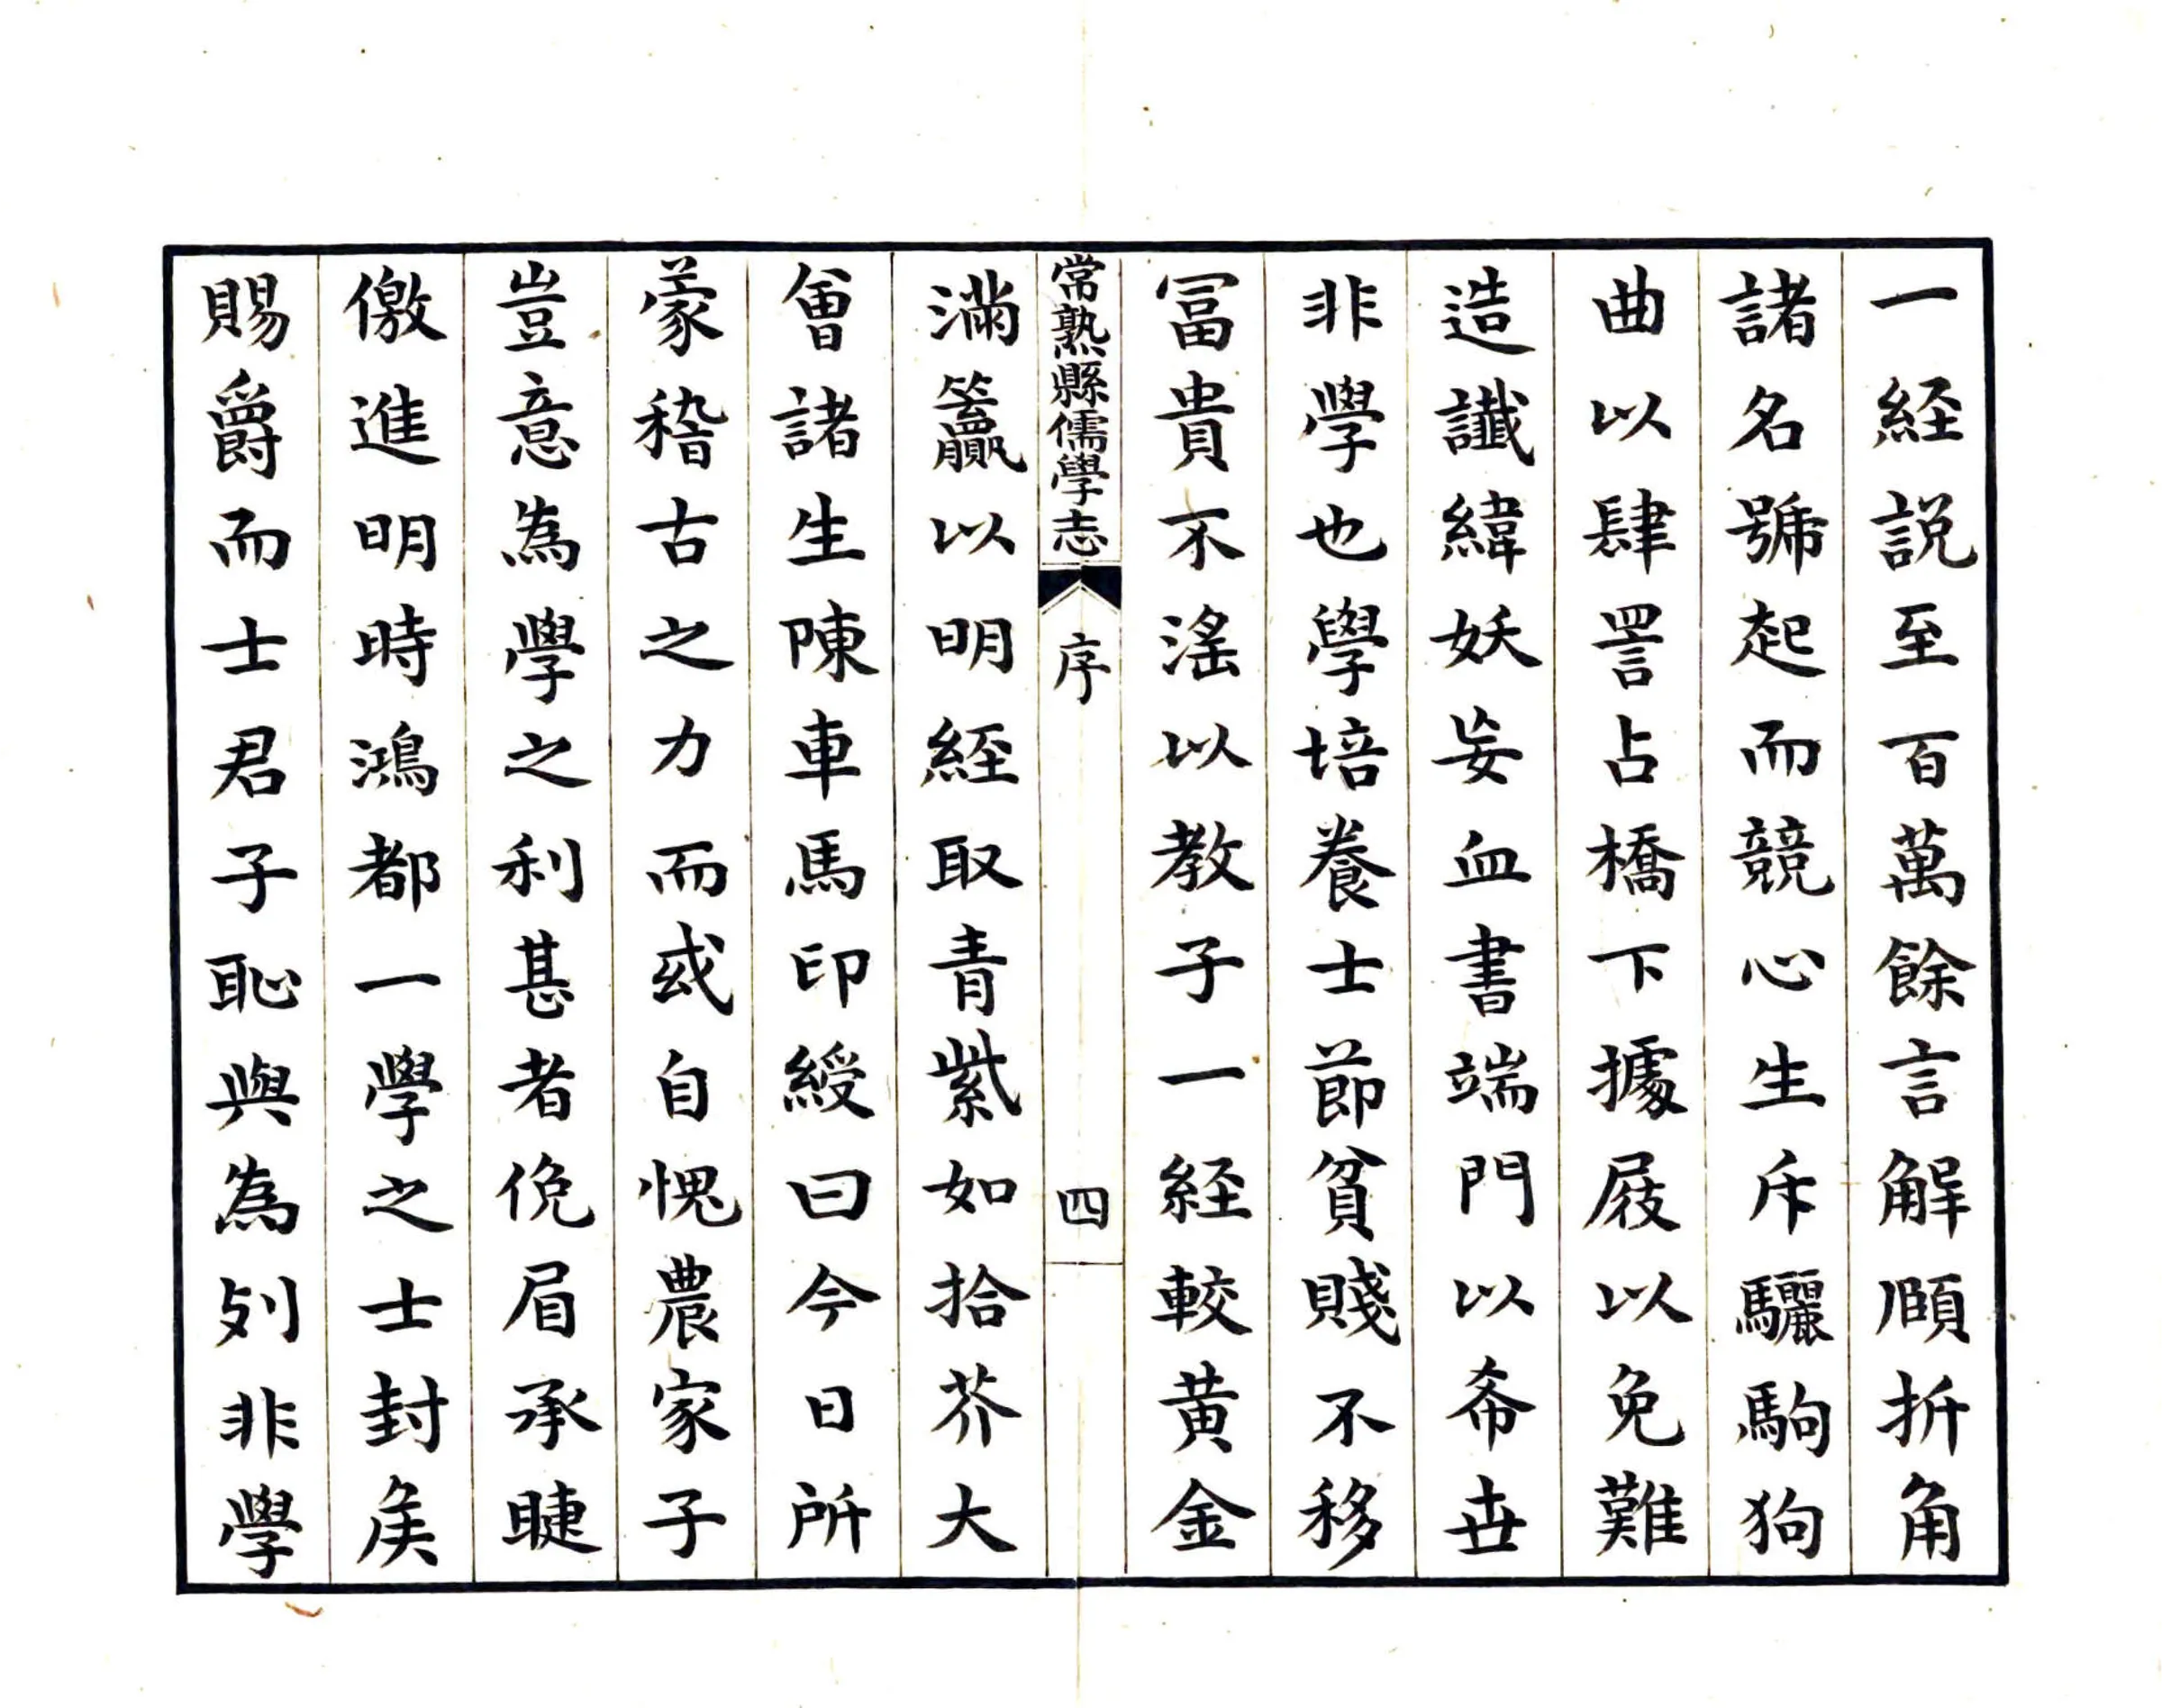 一経説至百萬餘言解頤折角
諸名號起而競心生斥驪駒狗
曲以肆詈占橋下據屐以免難
造讖緯妖妄血書端門以希世
非學也學培養士節貧賤不移
冨貴不滛以教子一経較黄金
常熟縣儒學志 序 四
滿籯以明經取青紫如拾芥大
會諸生陳車馬印綬曰今日所
蒙稽古之力而或自愧農家子
豈意為學之利甚者俛眉承睫
儌進明時鴻都一學之士封矦
賜爵而士君子恥與為列非學